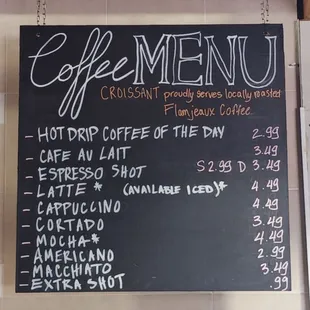 Coffee MENU
CROISSANT proudly serves locally roasted
Flamjeaux Coffee
- HOT DRIP COFFEE OF THE DAY 2.99
- CAFE AU LAIT 3.49
- ESPRESSO SHOT S 2.99 D 3.49
- LATTE * (AVAILABLE ICED)* 4.49
- CAPPUCCINO 4.49
- CORTADO 3.49
- MOCHA* 4.49
- AMERICANO 2.99
- MACCHIATO 3.49
- EXTRA SHOT .99